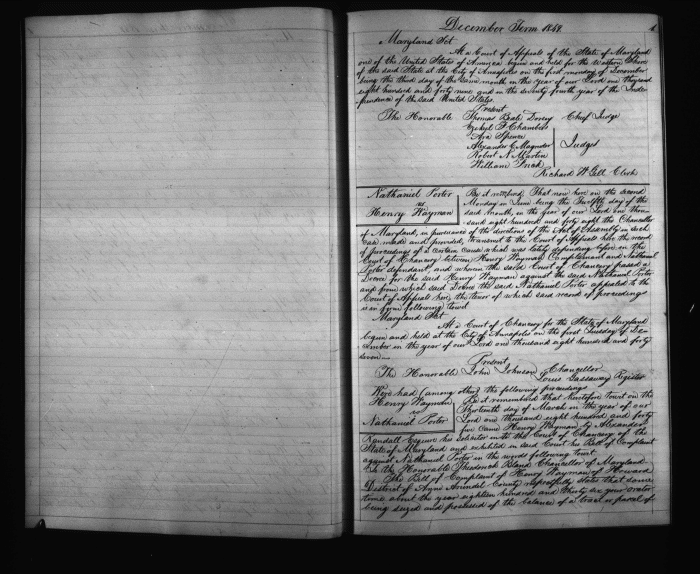 December Term 1849.
Maryland Sct
At a Court of Appeals of the State of Maryland
one of the United States of America begun and held for the Western Shore
of the said State at the City of Annapolis on the first monday of December
being the third day of the same month in the year of our Lord one thousand
eight hundred and forty nine and in the seventy fourth year of the Inde
pendence of the said United States.
Present
The Honorable Thomas Beale Dorsey Chief Judge
Ezekiel F Chambers
Ara Spence
Alexander C Magruder
Robert N Martin
William Frick
Judges
Richard W Gill Clerk
Nathaniel Porter
vs
Henry Wayman
Be it remembered, That now here on the second
Monday in June being the Twelfth day of the
said month, in the year of our Lord one thou
sand eight hundred and forty eight the Chancellor
of Maryland, in pursuance of the directions of the Act of Assembly in such
case made and provided, transmit to the Court of Appeals here the record
of proceedings of a certain cause which was lately depending before in the
Court of Chancery between Henry Wayman Complainant and Nathaniel
Porter defendant, and wherein the said Court of Chancery passed a
Decree for the said Henry Wayman against the said Nathaniel Porter
and from which said Decree the said Nathaniel Porter appealed to the
Court of Appeals here, the tenor of which said record of proceedings
is in form following towit
Maryland Sct.
At a Court of Chancery for the State of Maryland
begun and held at the City of Annapolis on the first Tuesday of De
cember in the year of our Lord one thousand eight hundred and forty
seven
Present
The Honorable John Johnson Chancellor
Louis Gassaway Register
Were had (among other) the following proceedings
Henry Wayman
vs
Nathaniel Porter
Be it remembered that heretofore towit on the
thirteenth day of March in the year of our
Lord one thousand eight hundred and forty
five came Henry Wayman by Alexander
Randall Esquire his solicitor into the Court of Chancery of the
State of Maryland and exhibited in said Court his Bill of Complaint
against Nathaniel Porter in the words following Towit
To the Honorable Theodorick Bland Chancellor of Maryland
The Bill of Complaint of Henry Wayman of Howard
District of Anne Arundel County respectfully states that some
time about the year eighteen hundred and thirty six your orator
being seized and possessed of the balance of a tract or parcel of